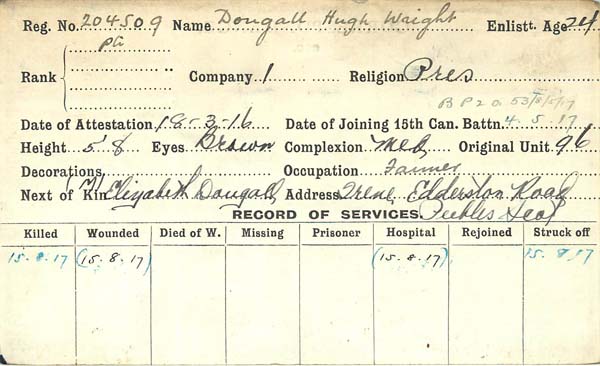 Reg. No. 204509 Name Dougall Hugh Wright Enlistt. Age 24
Pte
Rank Company 1 Religion Pres
B P 2 O 53/8/5/17
Date of Attestation 18-3-16 Date of Joining 15th Can. Battn. 4.5.17
Height 5'8 Eyes Brown Complexion Med Original Unit 96
Decorations Occupation Farmer
Next of Kin Elizabeth Dougall Address Irene, Edderston Road
RECORD OF SERVICES Peebles Scot
Killed Wounded Died of W. Missing Prisoner Hospital Rejoined Struck off
15.8.17 (15.8.17) (15.8.17) 15.8.17